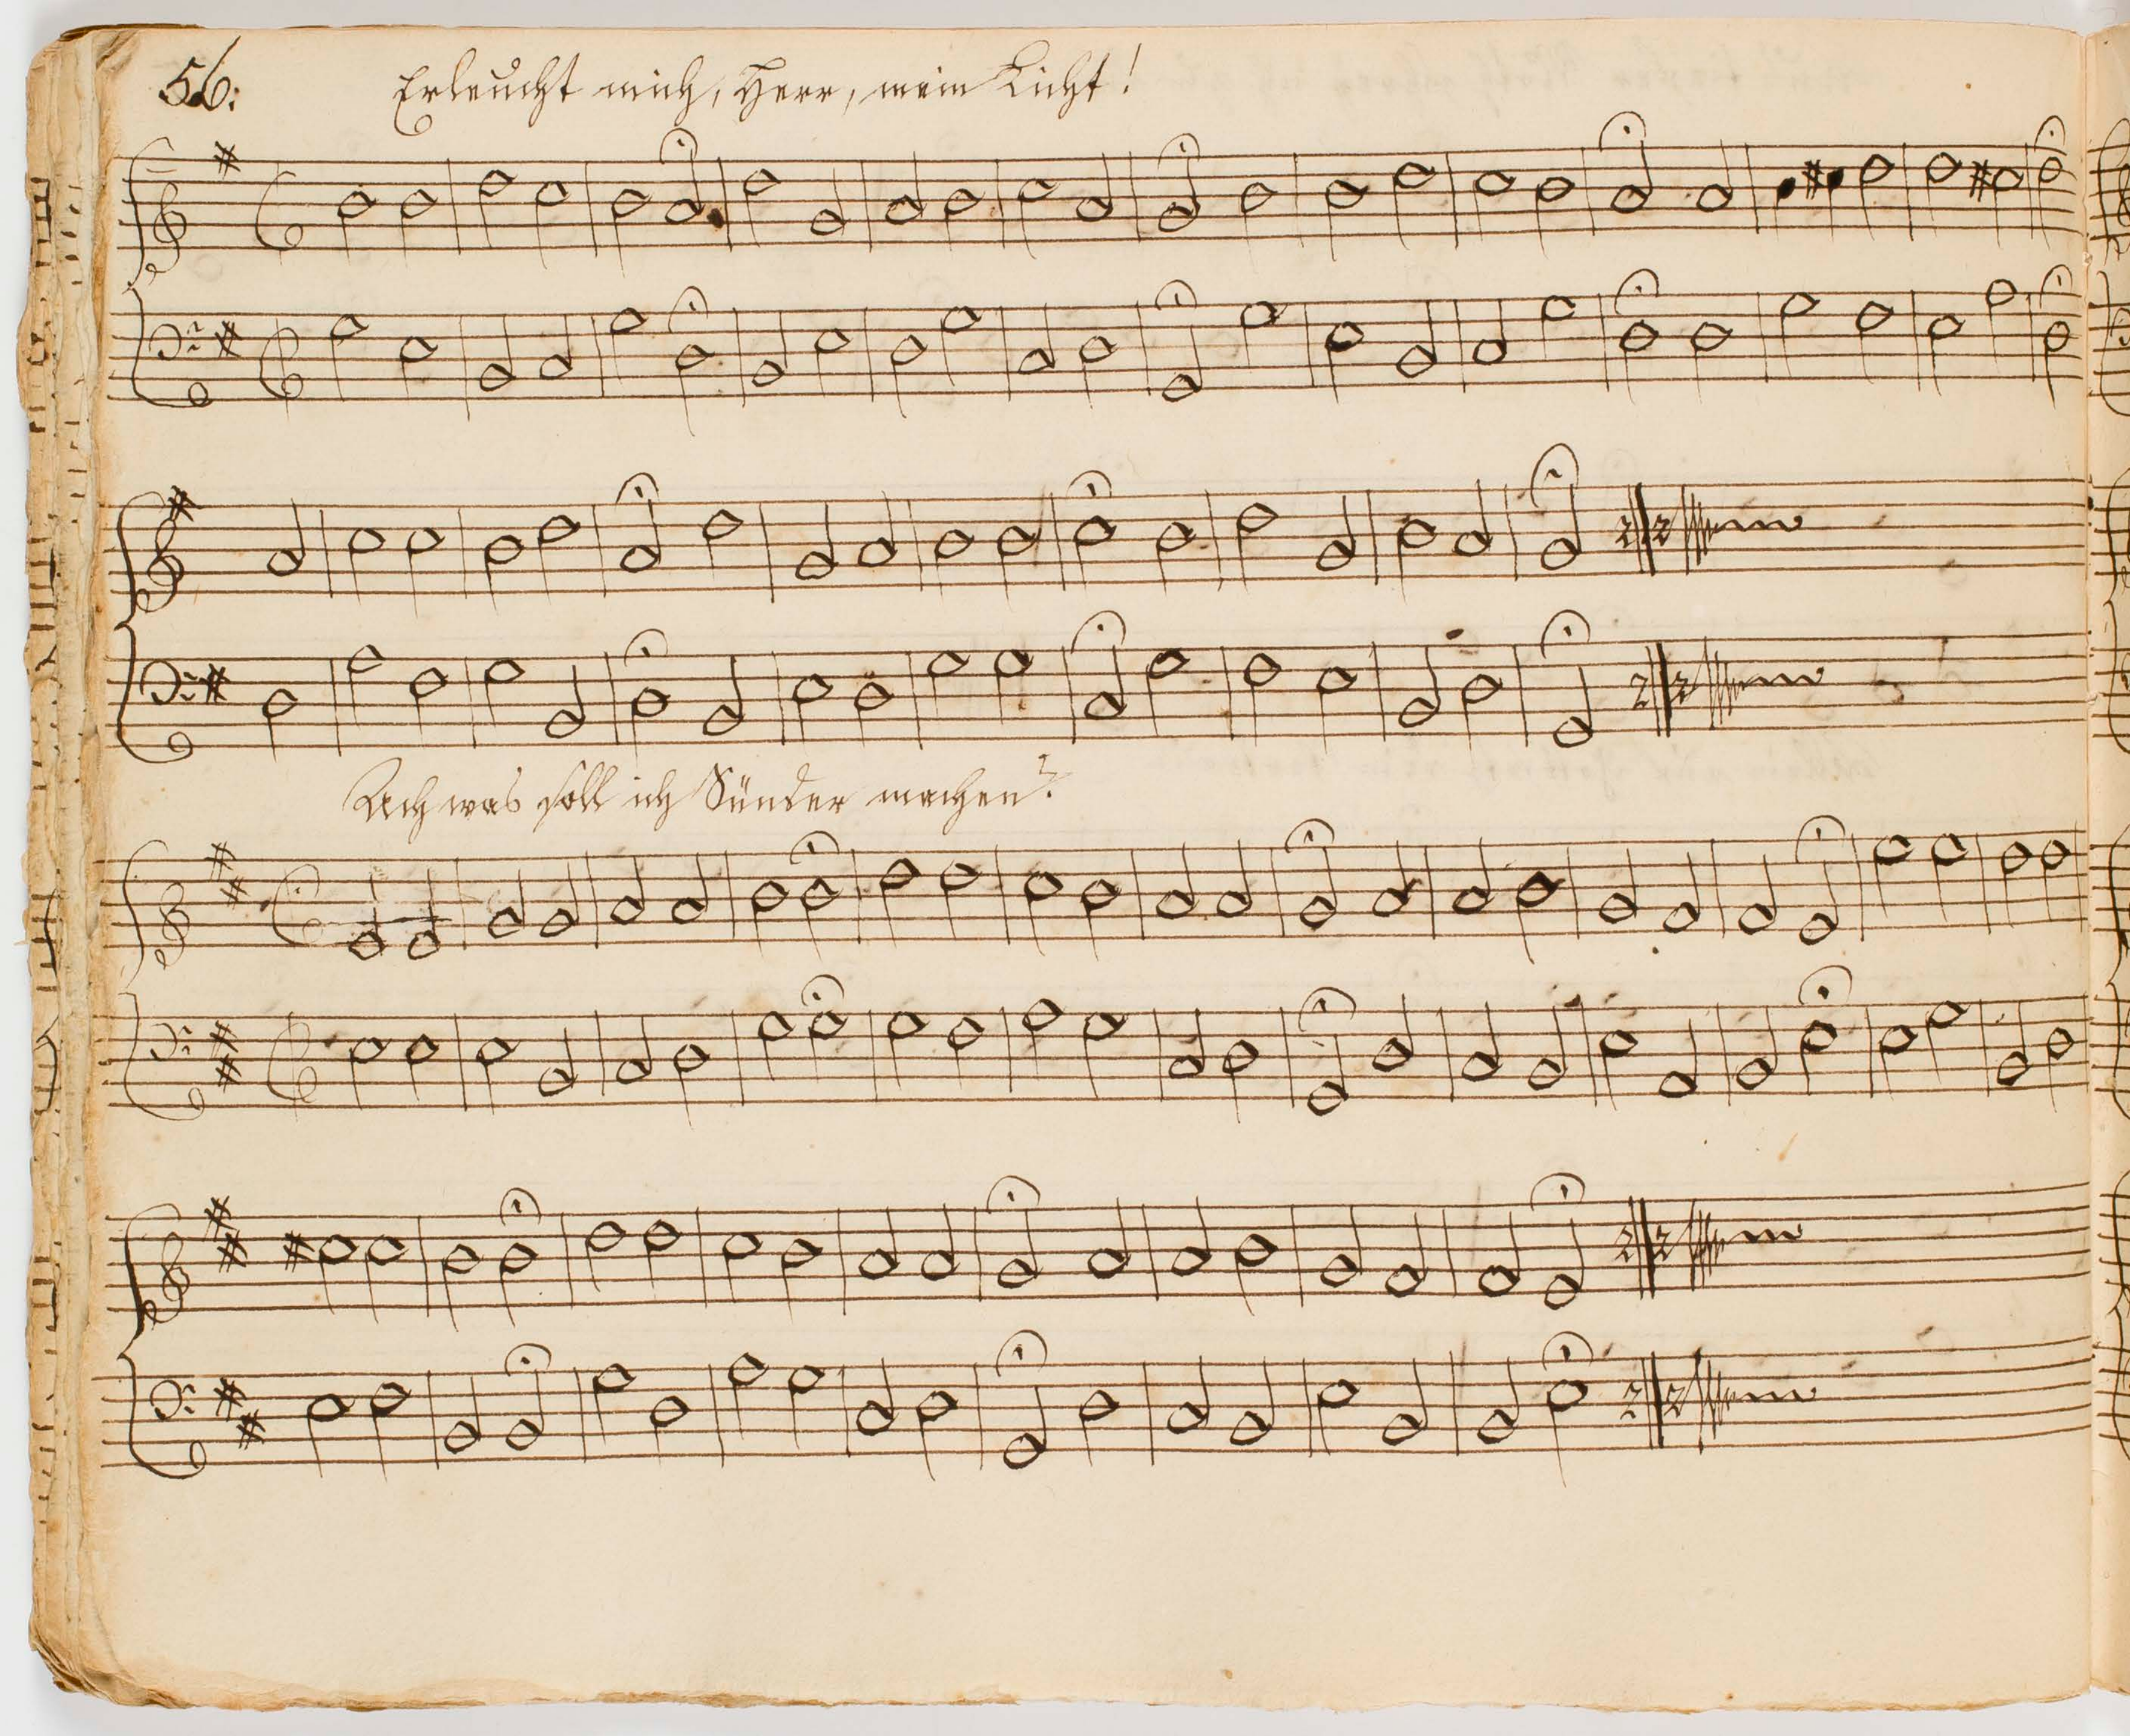 56:
Erleucht mich, Herr, mein Licht!
Ach was soll ich Sünder machen?